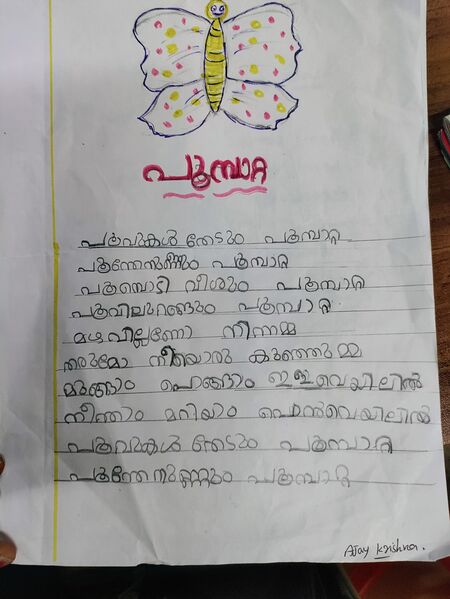 പൂമ്പാറ്റ
പൂവുകൾ തേടും പൂമ്പാറ്റ
പൂന്തേനുണ്ണും പൂമ്പാറ്റ
പൂമ്പൊടി വീശും പൂമ്പാറ്റ
പൂവിലുറങ്ങും പൂമ്പാറ്റ
മഴവില്ലാണോ നിന്നമ്മ
തരുമോ നീയൊരു കുഞ്ഞുമ്മ
മുങ്ങാം പൊങ്ങാം ഈവെയിലിൽ
നീന്താം മറിയാം പൊൻവെയിലിൽ
പൂവുകൾ തേടും പൂമ്പാറ്റ
പൂന്തേനുണ്ണും പൂമ്പാറ്റ
Ajay Krishna.